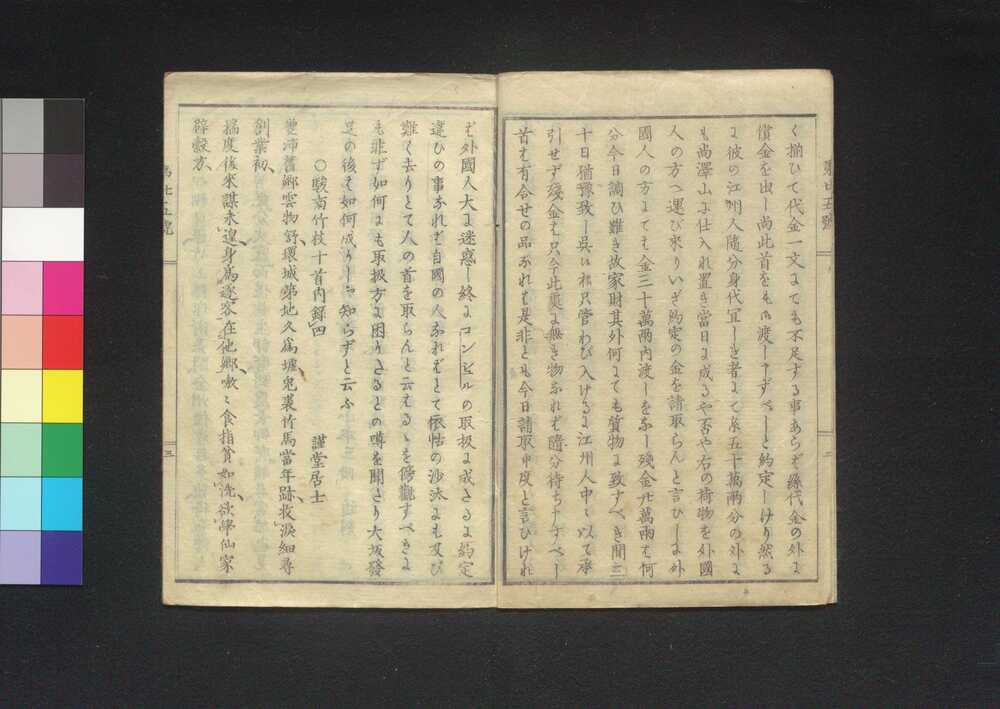 く揃ひて代金一文にても不足する事あらば糸代金の外に
償金を出し尚此首をも相渡し申すべしと約定しけり然る
に彼の江州人隨分身代宜しき者にて糸五十萬兩分の外に
も尚澤山に仕入れ置き當日に成るや否や右の荷物を外國
人の方へ運び來りいざ約定の金を請取らんと言ひしに外
國人の方にても金三十萬兩内渡しをなし殘金廿萬兩も何
分今日調ひ難き故家財其外何にても質物に致すべき間三
十日猶豫致し呉い様只管わび入けるに江州人中々以て承
引せず殘金も只今此處に無き物なれば隨分待ち申すべし
首も有合せの品なれば是非とも今日請取申度と言ひけれ
ば外國人大に迷惑し終にコンシュルの取扱に成たるに約定
違ひの事なれば自國の人なればとて依怙の沙汰にも及び
難く去りとて人の首を取らんと云へるを傍觀すべきに
も非ず如何にも取扱方に困りたるとの噂を聞たり大坂發
足の後は如何成りしか知らずと云ふ
○駿府竹枝十首内録四 謹堂居士
豐沛舊鄉雲物舒環城第地久爲墟兒裏竹馬當年跡收淚細尋
創業初
搖度後來謀未遑身爲逐客在他鄉嗷々食指貧如洗欲學仙家
辟穀方